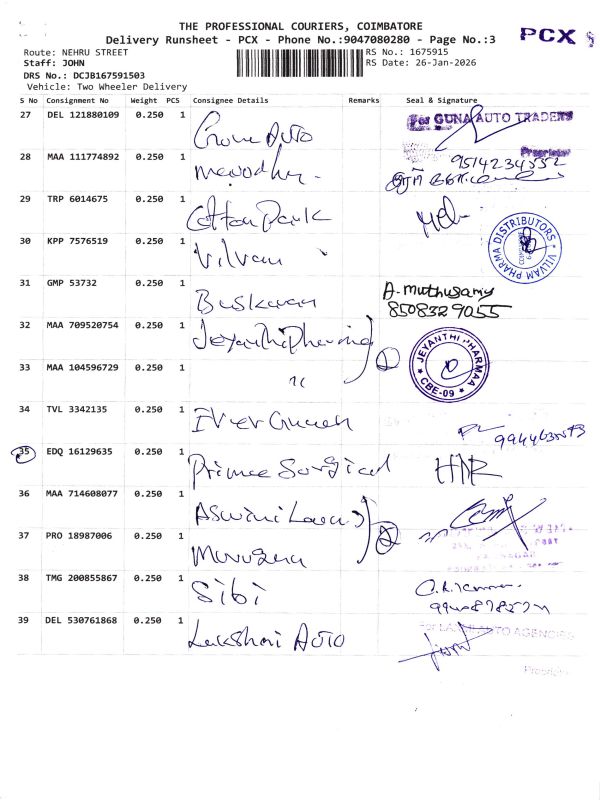 THE PROFESSIONAL COURIERS, COIMBATORE
PCX
Delivery Runsheet - PCX - Phone No.:9047080280 - Page No.:3
Route: NEHRU STREET
RS No.: 1675915
Staff: JOHN
RS Date: 26-Jan-2026
DRS No.: DCJB167591503
Vehicle: Two Wheeler Delivery
S No Consignment No Weight PCS Consignee Details Remarks Seal & Signature
27 DEL 121880109 0.250 1 Auto For GUNA AUTO TRADERS
Proprietor
28 MAA 111774892 0.250 1 9514234552
29 TRP 6014675 0.250 1 Cotton Park
30 KPP 7576519 0.250 1 Vilvam VILVAM PHARMA DISTRIBUTORS
31 GMP 53732 0.250 1 Baskaran A. Muthusamy
8508329055
32 MAA 709520754 0.250 1 Jeyanthi Pharma JEYANTHI PHARMAA CBE-09
33 MAA 104596729 0.250 1 "
34 TVL 3342135 0.250 1 Ever Green
35 EDQ 16129635 0.250 1 Prince Surgical
36 MAA 714608077 0.250 1 Aswini
37 PRO 18987006 0.250 1 Murugan
38 TMG 200855867 0.250 1 Sibi
39 DEL 530761868 0.250 1 Lakshmi Auto For LAXMI AUTO AGENCIES
Proprietor